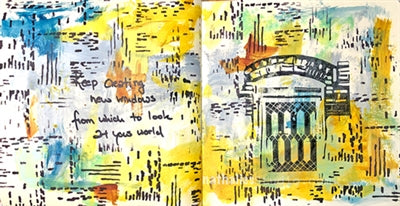 Keep Creating
new windows
from which to look
at your world